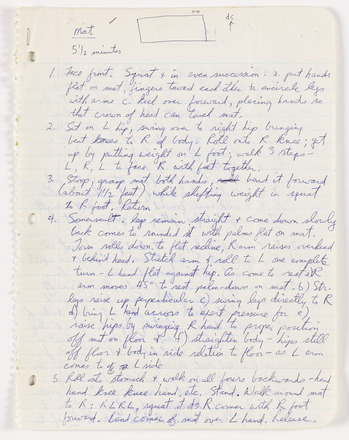 mat
ds
5 1/2 minutes
1. Face front. Squat & in even succession: a. put hands
flat on mat, fingers toward each other to encircle legs
with arms c. keel over forward, placing hands so
that crown of head can touch mat.
2. Sit on L hip, swing over to right hip bringing
bent knees to R of body; Roll onto R knee; get
up by putting weight on L foot; walk 3 steps -
L, R, L to face R with feet together.
3. Stoop, grasp mat both hands, bend it forward
(about 1 1/2 feet) while shifting weight in squat
to R foot. Return
4. Somersault. legs remain straight & come down slowly
back comes to rounded sit with palms flat on mat.
Torso rolls down to flat recline, R arm raises overhead
& behind head. Stretch arm & roll to L one complete
turn - L hand flat against hip. Go come to rest R
arm moves 45° to rest palm-down on mat. b) Str.
legs raise up perpendicular c) swing legs directly to R
d) bring L hand across to exert pressure for e)
raise hips by swinging R hand to proper position
off mt on floor & f) straighten body - hips still
off floor & body in side relation to floor - as L arm
comes to L side
5. Roll onto stomach & walk on all fours backwards - hand
hand knee knee hand, etc. Stand. Walk around mat
to R: RLRL, squat at ds R corner with R foot
forward. Bend corner of mat over L hand. Release.